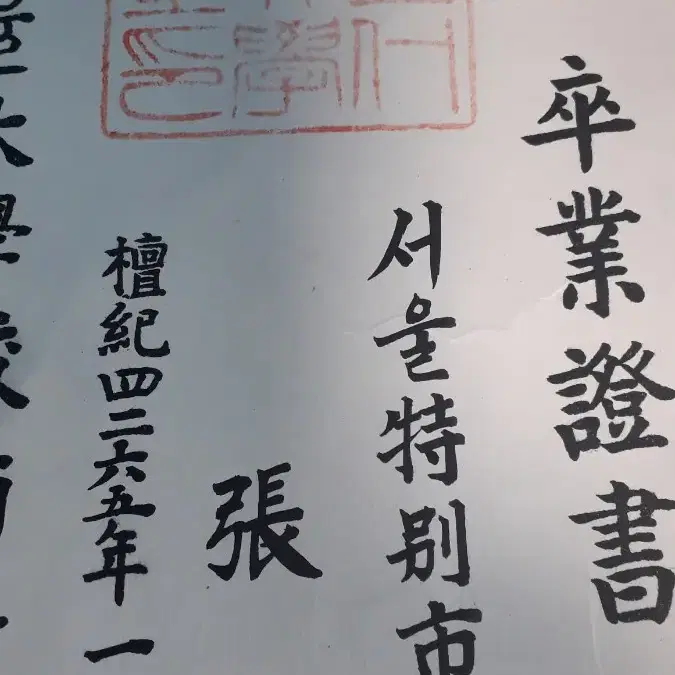 卒業證書
서울特別市
張
檀紀四二六五年一
大學
學